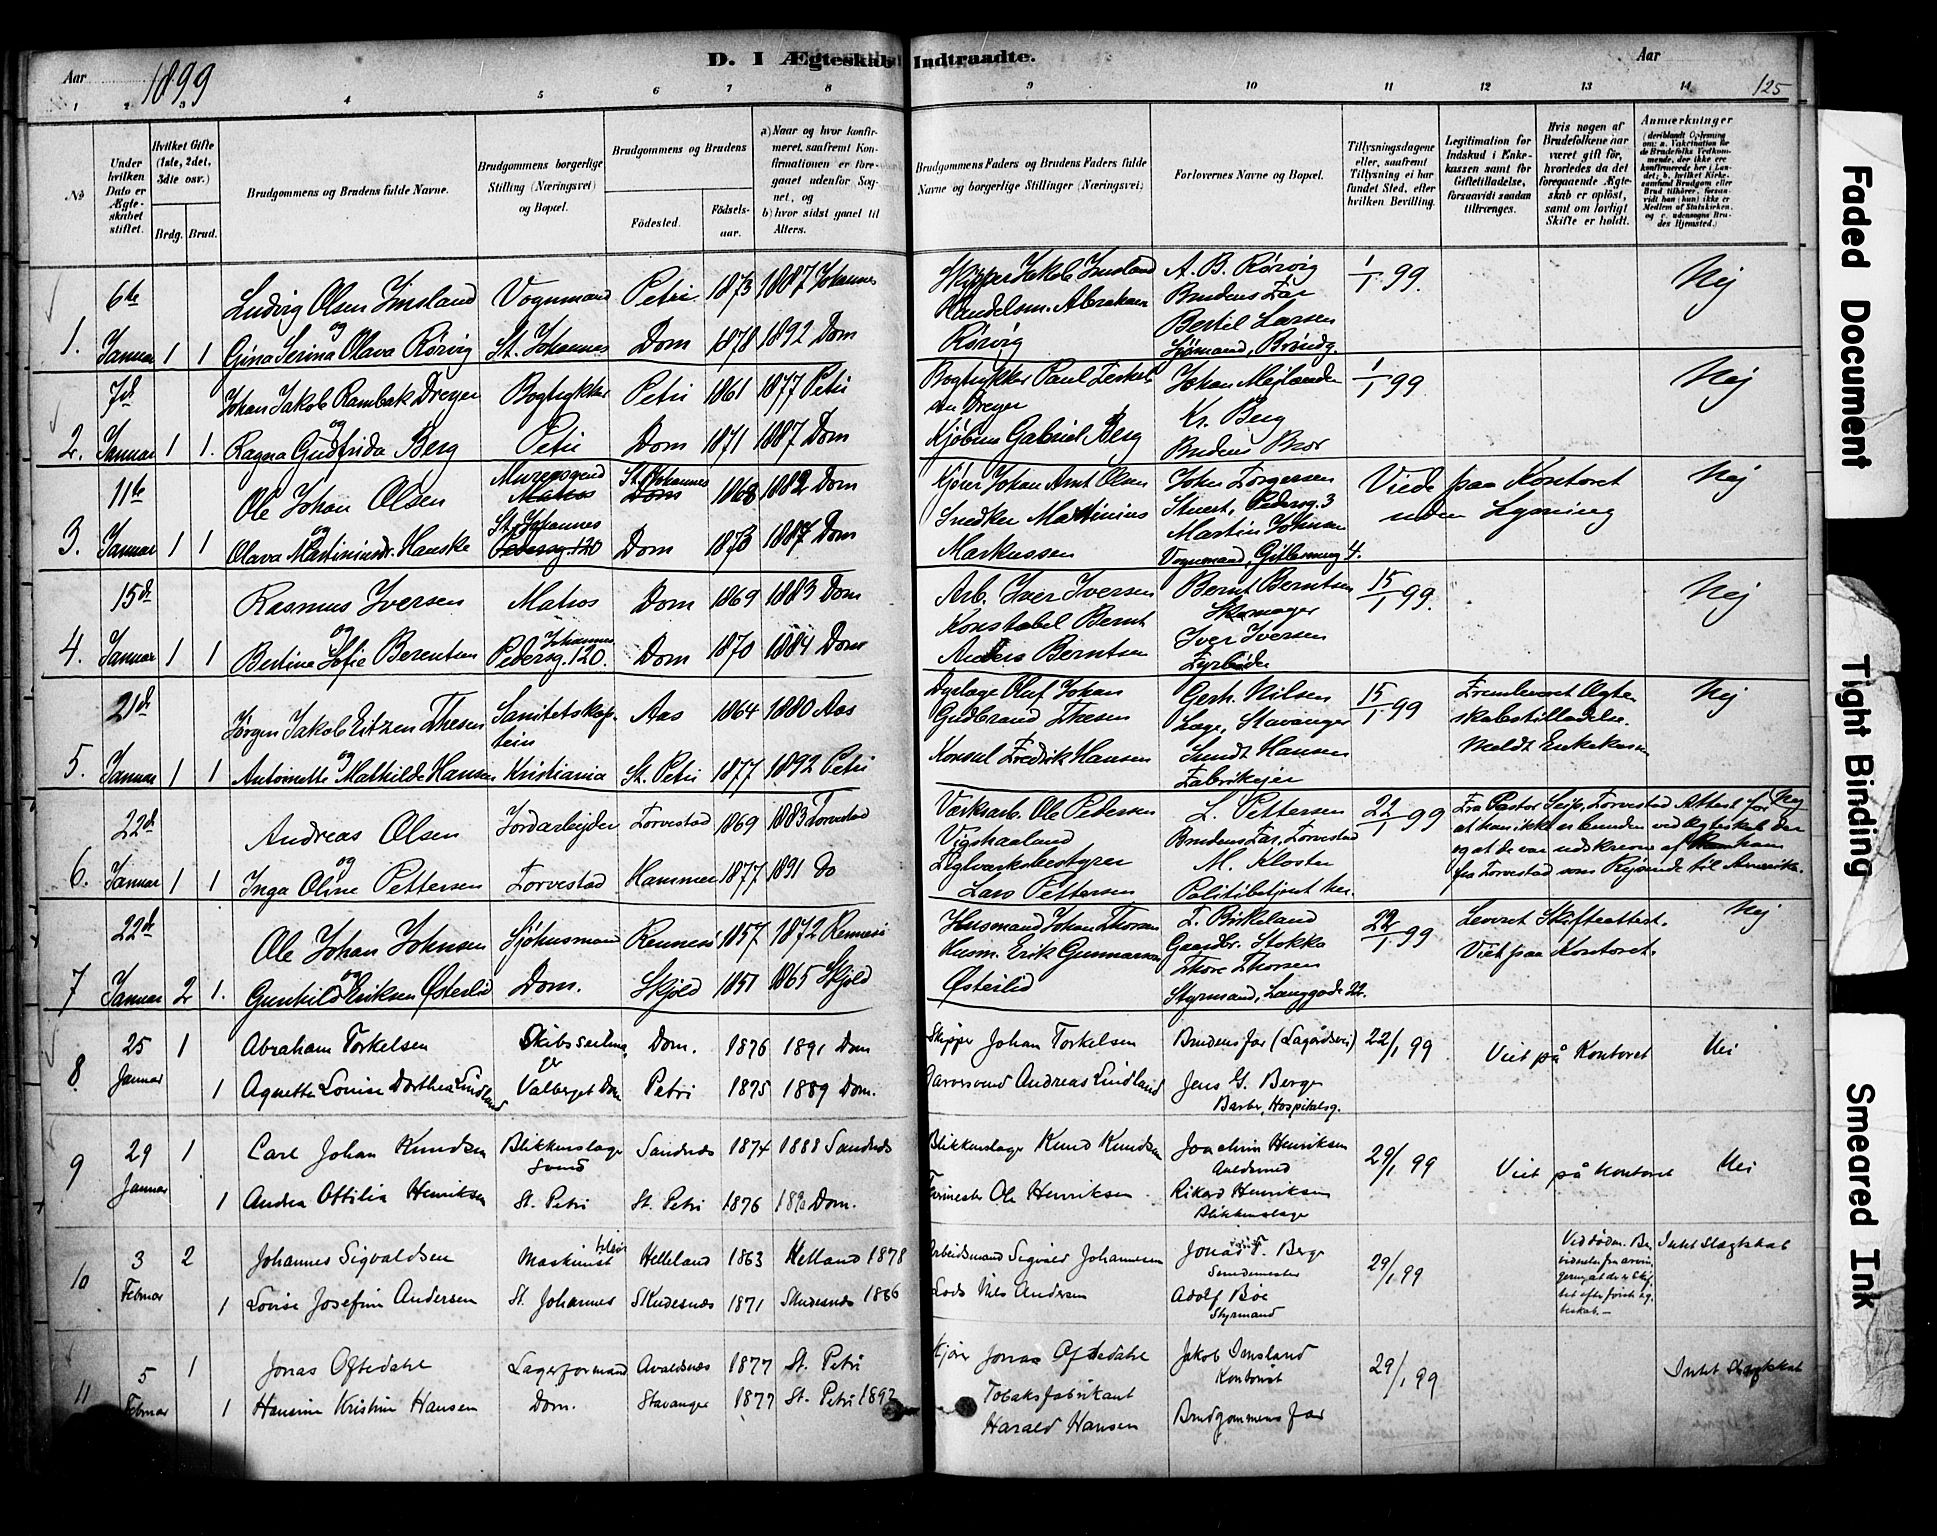 D. I Ægteskab Indtraadte.
Aar 1899
Aar
125
1 2 3 4 5 6 7 8 9 10 11 12 13 14
No
Under hvilken Dato er Ægteskabet stiftet.
Hvilket Gifte (1ste, 2det, 3die osv.)
Brdg. Brud.
Brudgommens og Brudens fulde Navne.
Brudgommens borgerlige Stilling (Næringsvei) og Bopæl.
Brudgommens og Brudens
Fødested.
Fødselsaar.
a) Naar og hvor konfirmeret, saafremt Konfirmationen er foregaaet udenfor Sognet, og
b) hvor sidst gaaet til Alters.
Brudgommens Faders og Brudens Faders fulde Navne og borgerlige Stillinger (Næringsvei)
Forlovernes Navne og Bopæl.
Tillysningsdagene eller, saafremt Tillysning ei har fundet Sted, efter hvilken Bevilling.
Legitimation for Indskud i Enkekassen samt for Giftetilladelse, forsaavidt saadan tiltrænges.
Hvis nogen af Brudefolkene har været gift før, hvorledes da det foregaaende Ægteskab er opløst, samt om lovligt Skifte er holdt.
Anmærkninger
1. 6te Januar 1 1
Ludvig Olsen Imsland
og
Gina Serina Olava Rørvig
Vognmand
St. Johannes
Petri 1873 1887 Johannes
Dom 1878 1892 Dom
Skipper Jakob Imsland
Handelsm. Abraham
Rørvig
A. B. Rørvig
Brudens Far
Bertil Larsen
Sjømand,
1/1 99.
Nej
2. 7d Januar 1 1.
Johan Jakob Rambak Dreyer
og
Ragna Gudfrida Berg
Bogtrykker
Petri
Petri 1861 1877 Petri
Dom 1871 1887 Dom
Bogtrykker Paul
Dreyer
Kjøbm Gabriel Berg
Johan Mejlænder
Kr. Berg
Brudens Bror
1/1 99
Nej
3. 11te Januar 1 1
Ole Johan Olsen
og
Olava Hauske
Murersvend
Matros
St. Johannes
Pedersg. 120
St. Johannes
Dom 1868 1882 Dom
Dom 1873 1887 Dom
Kjører Johan Arnt Olsen
Snedker Martinius
Markussen
John Torgersen
Stuert, Pedersg. 3
Martin Johnsen
Vognmand, 4.
Viede paa Kontoret
uden Lysning
Nej
4. 15de Januar 1 1
Rasmus Iversen
og
Bertina Sofie Berentsen
Matros
Johannes
Pedersg. 120.
Dom 1869 1883 Dom
Dom 1870 1884 Dom
Arb. Iver Iversen
Konstabel Bernt
Anders Berntsen
Bernt Berntsen
Skomager
Iver Iversen
Fyrbøder
15/1 99.
Nej
5. 21de Januar 1 1
Jørgen Jakob Eitzen Thesen
og
Antoinette Mathilde Hansen
Sanitetskaptein
Kristiania
Aas 1864 1880 Aas
St. Petri 1877 1892 Petri
Dyrlæge Oluf Johan
Gudbrand Thesen
Konsul Fredrik Hansen
Gerh. Nilsen
Læge, Stavanger
Sundt Hansen
Fabrikejer
15/1 99
Fremlevert Ægteskabstilladelse.
Meldt Enkekassen
Nej
6. 22de Januar 1 1
Andreas Olsen
og
Inga Oline Pettersen
Jordarbejder
Torvestad
Torvestad 1869 1883 Torvestad
Hammer 1877 1891 Do
Værksarb. Ole Pedersen
Vigshaaland
Teglværksbestyrer
Lars Pettersen
L. Pettersen
Brudens Far, Torvestad
M. Kloster
Politibetjent her.
22/1 99
Fra Pastor Seip, Torvestad Attest for
at han ikke er bunden ved Ægteskab der
og at de var udskrevne af ham
fra Torvestad som Rejsende til Amerika.
Nej
7 22de Januar 2 1.
Ole Johan Johnsen
og
Gunhild Eriksen Østerlid
Sjøhusmand
Dom.
Rennesø 1857 1872 Rennesø
Skjold 1851 1865 Skjold
Husmand Johan Thorsen
Husm. Erik Gunnarson
Østerlid
T. Birkeland
Gaardbr. Stokka
Thore Thorsen
Styrmand, Langgade 22.
22/1 99
Leveret Skifteattest.
Viet paa Kontoret.
Nej
8 25 Januar 1 1
Abraham Torkelsen
Agnette Louise Dorthea Lindland
Skibsseilm.
Valberget Dom
Dom. 1876 1891 Dom
Petri 1875 1889 Dom.
Skipper Johan Torkelsen
Garversvend Andreas Lindland
Brudens far (Lagårdsvei)
Jens G. Berge
Barber, Hospitalsg.
22/1 99
Viet på Kontoret
Nei
9 29 Januar 1 1
Carl Johan Knudsen
Andrea Ottilia Henriksen
Blikkenslagersvend
St. Petri
Sandnæs 1874 1888 Sandnæs
St. Petri 1876 1890 Dom.
Blikkenslager Knud Knudsen
Ole Henriksen
Joachim Henriksen
Rikard Henriksen
Blikkenslager
29/1 99
Viet på Kontoret
Nei
10 3 Februar 2 1
Johannes Sigvaldsen
Lovise Josefine Andersen
Maskinist
St. Johannes
Helleland 1863 Helland 1878
Skudesnæs 1871 Skudesnæs 1886
Arbeidsmand Sigvald Johannesen
Lods Nils Andersen
Jonas T. Berge
Adolf Bøe
Styrmand
29/1 99
Intet Slægtskab
11 5 Februar 1 1
Jonas Oftedahl
Hansine Kristine Hansen
Lagerformand
Dom.
Avaldsnæs 1877 St. Petri
Stavanger 1877 St. Petri 1892
Kjører Jonas Oftedahl
Tobaksfabrikant
Harald Hansen
Jakob Imsland
Kontorist
Brudgommens far
29/1 99
Intet Slægtskab
Faded Document
Tight Binding
Smeared Ink